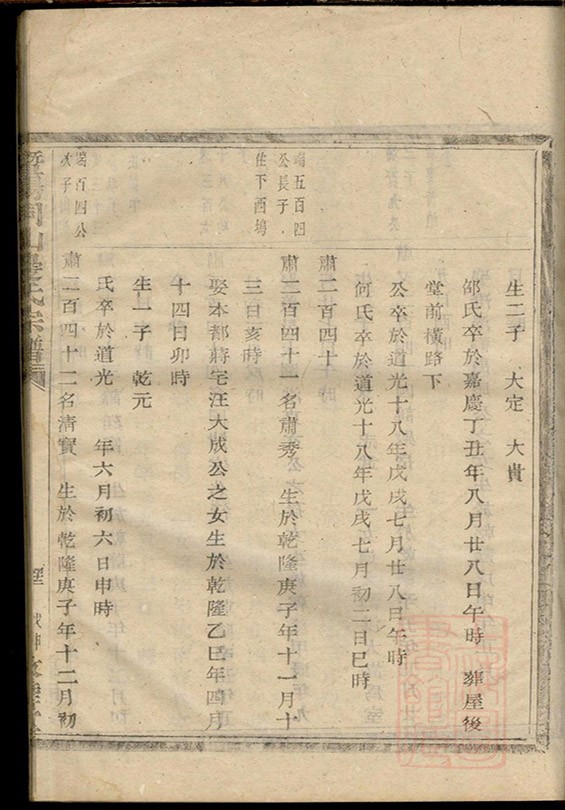 生二子　大定　大貴
邵氏卒於嘉慶丁丑年八月廿八日午時　葬屋後
堂前橫路下
公卒於道光十八年戊戌七月廿八日午時
何氏卒於道光十八年戊戌七月初二日巳時
肅二百四十
端五百四
公長子
住下西塢
肅二百四十一名肅秀　生於乾隆庚子年十一月十
三日亥時
娶本都蔣宅汪大成公之女生於乾隆乙巳年四月
十四日卯時
生一子　乾元
氏卒於道光　年六月初六日申時
肅二百四十二名清寶　生於乾隆庚子年十二月初
百四公
次子
氏宗譜